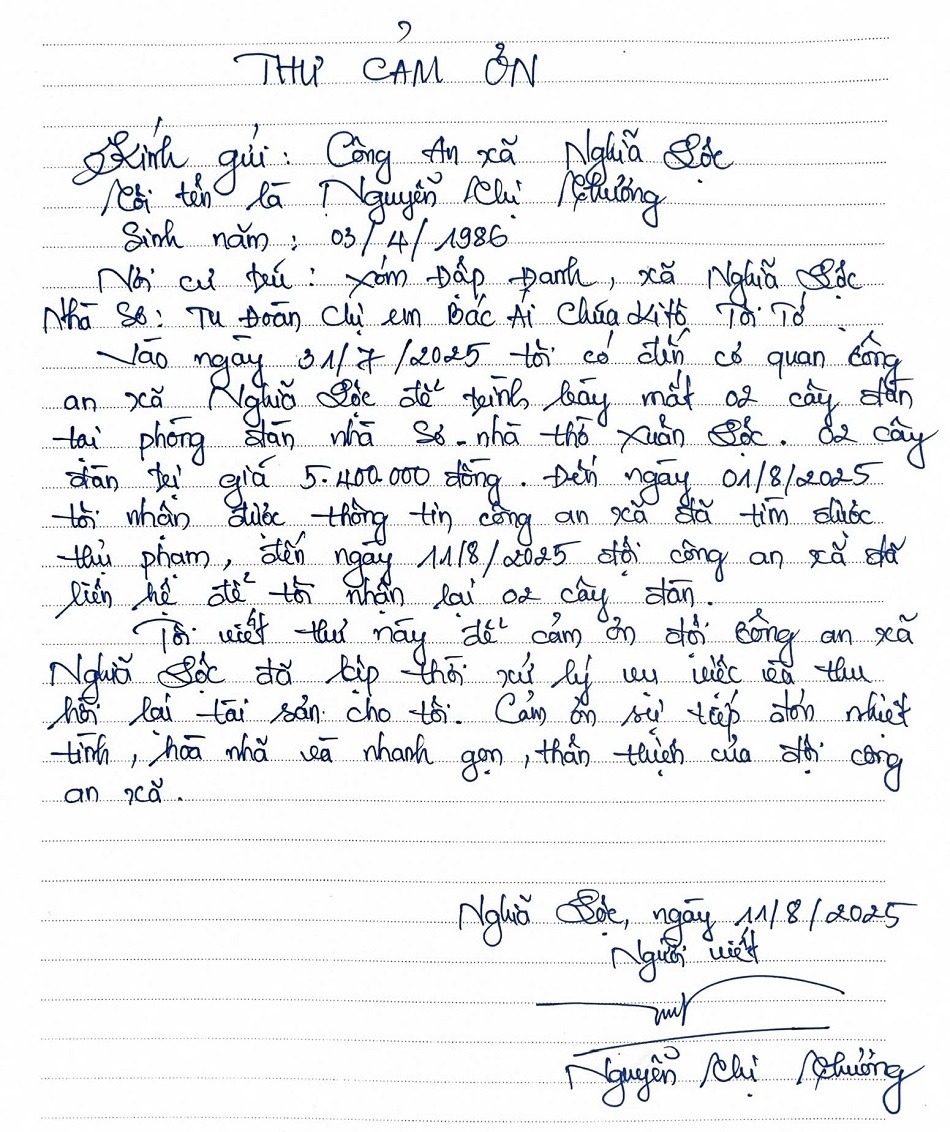 THƯ CẢM ƠN
Kính gửi: Công An xã Nghĩa Lộc
Tôi tên là Nguyễn Thị Phương
Sinh năm: 03/4/1986
Nơi cư trú: xóm Đập Đanh, xã Nghĩa Lộc
Nhà Sơ: Tu Đoàn Chị em Bác Ái Chúa Kitô Tôi Tớ
Vào ngày 31/7/2025 tôi có đến cơ quan công
an xã Nghĩa Lộc để trình bày mất 02 cây đàn
tại phòng đàn nhà Sơ - nhà thờ Xuân Lộc. 02 cây
đàn trị giá 5.400.000 đồng. Đến ngày 01/8/2025
tôi nhận được thông tin công an xã đã tìm được
thủ phạm, đến ngày 11/8/2025 đội công an xã đã
liên hệ để tôi nhận lại 02 cây đàn.
Tôi viết thư này để cảm ơn đội Công an xã
Nghĩa Lộc đã kịp thời xử lý vụ việc và thu
hồi lại tài sản cho tôi. Cảm ơn sự tiếp đón nhiệt
tình, hoà nhã và nhanh gọn, thân thiện của đội công
an xã.
Nghĩa Lộc, ngày 11/8/2025
Người viết
Nguyễn Thị Phương